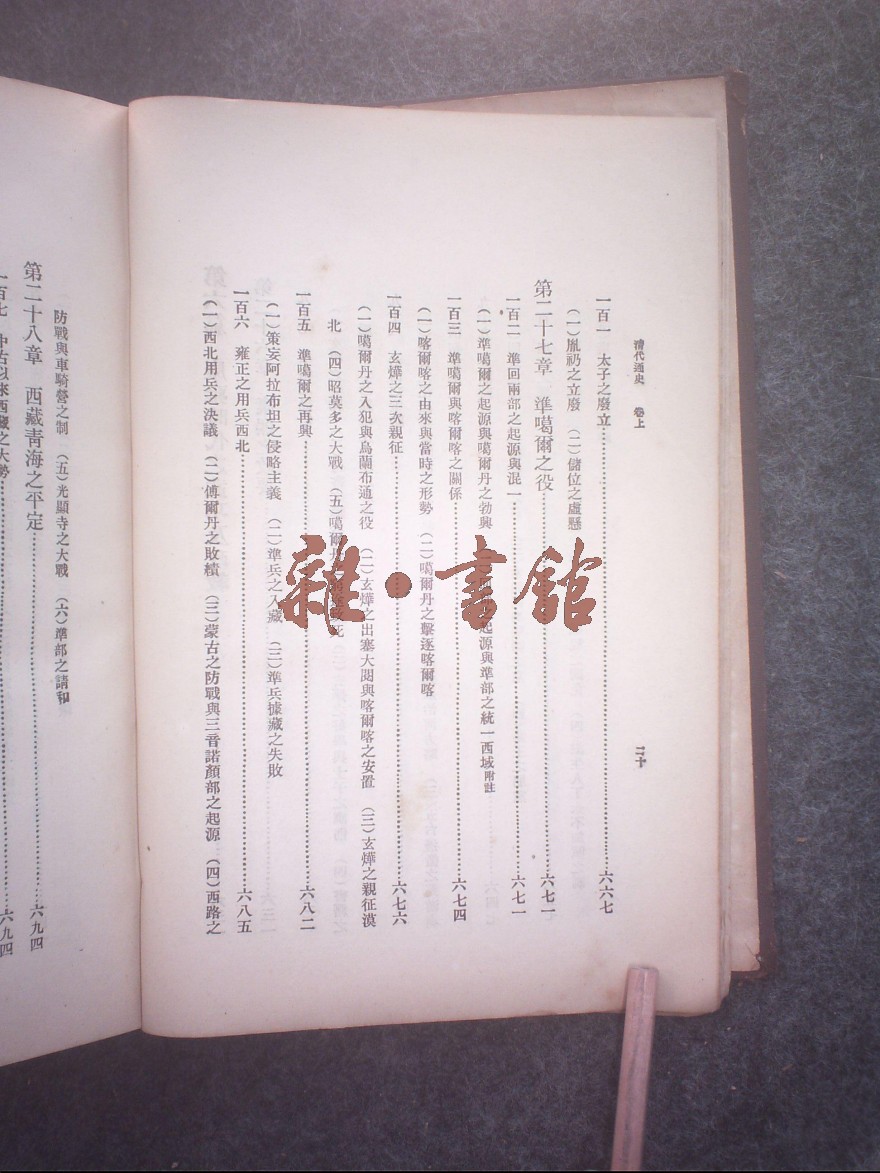 清代通史　卷上
二十
一百一　太子之廢立……六六七
（一）胤礽之立廢　（二）儲位之虛懸
第二十七章　準噶爾之役……六七一
一百二　準回兩部之起源與混一……六七一
（一）準噶爾之起源與噶爾丹之勃興　（二）起源與準部之統一西域附註
一百三　準噶爾與喀爾喀之關係……六七四
（一）喀爾喀之由來與當時之形勢　（二）噶爾丹之擊逐喀爾喀
一百四　玄燁之三次親征……六七六
（一）噶爾丹之入犯與烏蘭布通之役　（二）玄燁之出塞大閱與喀爾喀之安置　（三）玄燁之親征漠
北　（四）昭莫多之大戰　（五）噶爾丹死
一百五　準噶爾之再興……六八二
（一）策妄阿拉布坦之侵略主義　（二）準兵之入藏　（三）準兵據藏之失敗
一百六　雍正之用兵西北……六八五
（一）西北用兵之決議　（二）傅爾丹之敗績　（三）蒙古之防戰與三音諾顏部之起源　（四）西路之
防戰與車騎營之制　（五）光顯寺之大戰　（六）準部之請和
第二十八章　西藏青海之平定……六九四
一百七　中古以來西藏之大勢……六九四
雜·書館